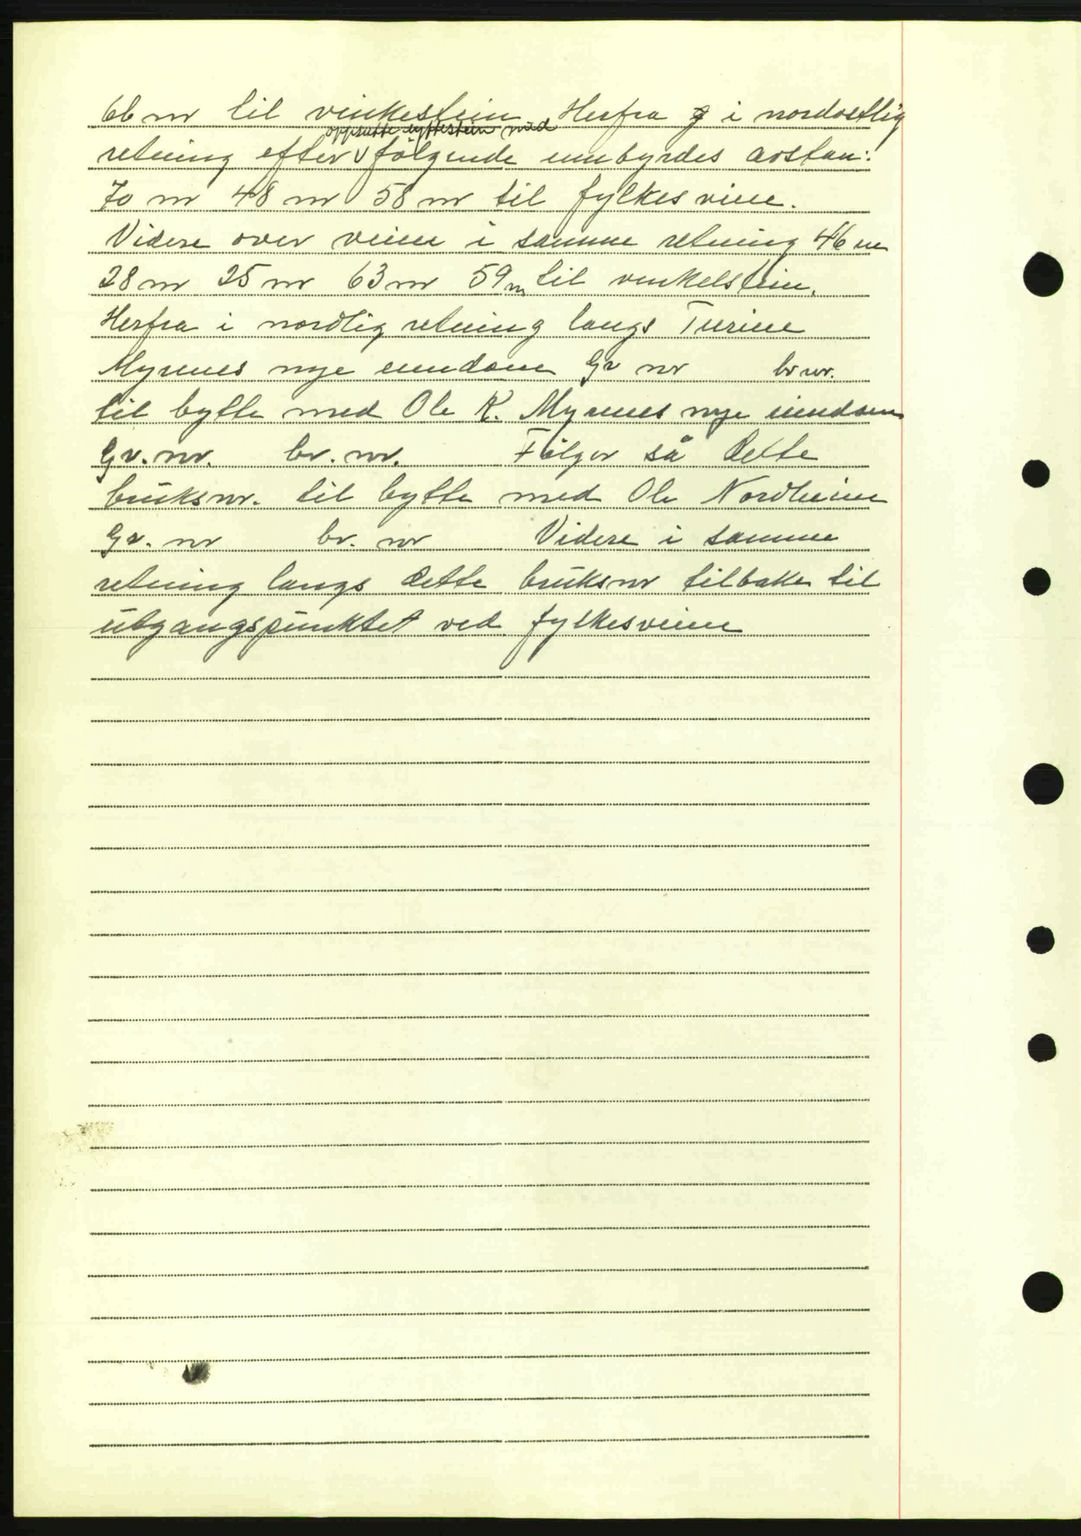 66 m til vinkestein. Herfra i nordostlig
oppsatte byttestein med
retning efter følgende innbyrdes avstan:
70 m 48 m 58 m til fylkesvien.
Videre over veien i samme retning 46 m
28 m 25 m 63 m 59 m til vinkelstein.
Herfra i nordlig retning langs Turine
Myrnes nye eiendom Gr nr br nr.
til bytte med Ole K. Myrnes nye eiendom
Gr. nr. br. nr. Følger så dette
bruksnr. til bytte med Ole Nordheim
Gr. nr br. nr Videre i samme
retning langs dette bruksnr tilbake til
utgangspunktet ved fylkesveien